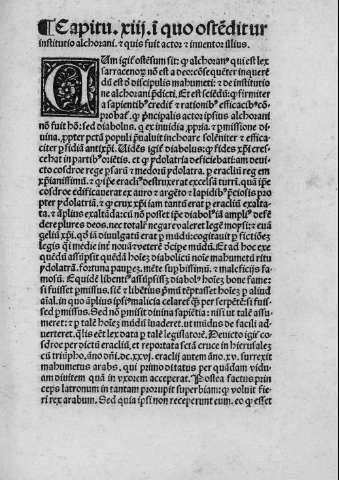 ¶Capitu. xiij. ī quo ostēditur
institutio alchorani. ⁊ quis fuit actor ⁊ inuentor illius.
CUm igit̄ ostēsum sit: ꝙ alchoranꝰ qui est lex
sarracenoꝝ nō est a deo: cōsequēter inquerē
dū est d̄ discipulis mahumeti: ⁊ de institutio
ne alchorani p̄dicti. Et est sciēdū: ꝙ firmiter
a sapientibꝰ credit̄ ⁊ rationibꝰ efficacibꝰ cō
probat̄. ꝙ p̄ncipalis actor ipsius alchorani
nō fuit hō: sed diabolus. ꝙ ex inuidia ꝓpria. ⁊ ꝑmissione di
uina. ꝓpter pctā populi p̄ualuit inchoare soleniter ⁊ effica
citer ꝑfidiā antixp̄i. Uidēs igit̄ diabolus: ꝙ fides xp̄i cres-
cebat in partibꝰ oriētis. et ꝙ ydolatria deficiebat: eo am deui-
cto cosdroe rege ꝑsaꝝ ⁊ medoꝝ ydolatra. ꝑ eracliū regē
xp̄ianissimū. ⁊ destruxerat excelsā turrī. quā ip̄e
cosdroe edificauerat ex auro ⁊ argēto ⁊ lapidibꝰ p̄ciosis pro
pter ydolatriā. ⁊ ꝙ crux xp̄i iam tantū erat ꝑ eracliū exalta-
ta. ⁊ āplius exaltāda: cū nō posset ip̄e diabolꝰ iā ampliꝰ defē
dere plures deos. nec totalr̄ negare valeret legē moysi: ⁊ euā
geliū xp̄i. qd̄ iā diuulgatū erat ꝑ mūdū: cogitauit ꝑ fictiōē
legis q̄si medie int̄ nouā ⁊ veterē decipe mūdū. Et ad hoc exe
quēdū assūpsit quēdā hoīeꝫ diabolicū noīe mahumetū ritu
ydolatrā. fortuna pauꝑeꝫ. mēte suꝑbissimū. ⁊ maleficijs fa-
mosū. Et quidē libentiꝰ assūpsissꝫ diabolꝰ hoīeꝫ bone fame:
si fuisset ꝑmissus. sic̄ ⁊ libētiꝰ p̄mū tēptasset hoīeꝫ ꝑ aliud
aīal. in quo āplius ipsiꝰ malicia celaret̄ qꝫ per serpētē: si fuis-
sed ꝑmissus. Sed nō ꝑmisit diuina sapiētia: nisi ut talē assu
meret: ꝛ ꝑ talē hoīeꝫ mūdū inuaderet. ut mūdus de facili ad
uerteret. qlis eēt lex data ꝑ talē legislatorē. Deuicto igit̄ cos-
droe per dictū eracliū. et reportata sctā cruce in hierusaleꝫ
cū triūpho. āno dn̄i. dc. xxvi. eraclij autem āno. xv. surrexit
mahumetus arabs. qui primo ditatus per quādam vidu-
am diuitem quā in vxorem acceperat. Postea factus princ
ceps latronum in tantam prorupit superbiam: ꝙ voluit fie
ri rex arabum. Sed quia ip̄si non receperunt eum. eo ꝙ esset